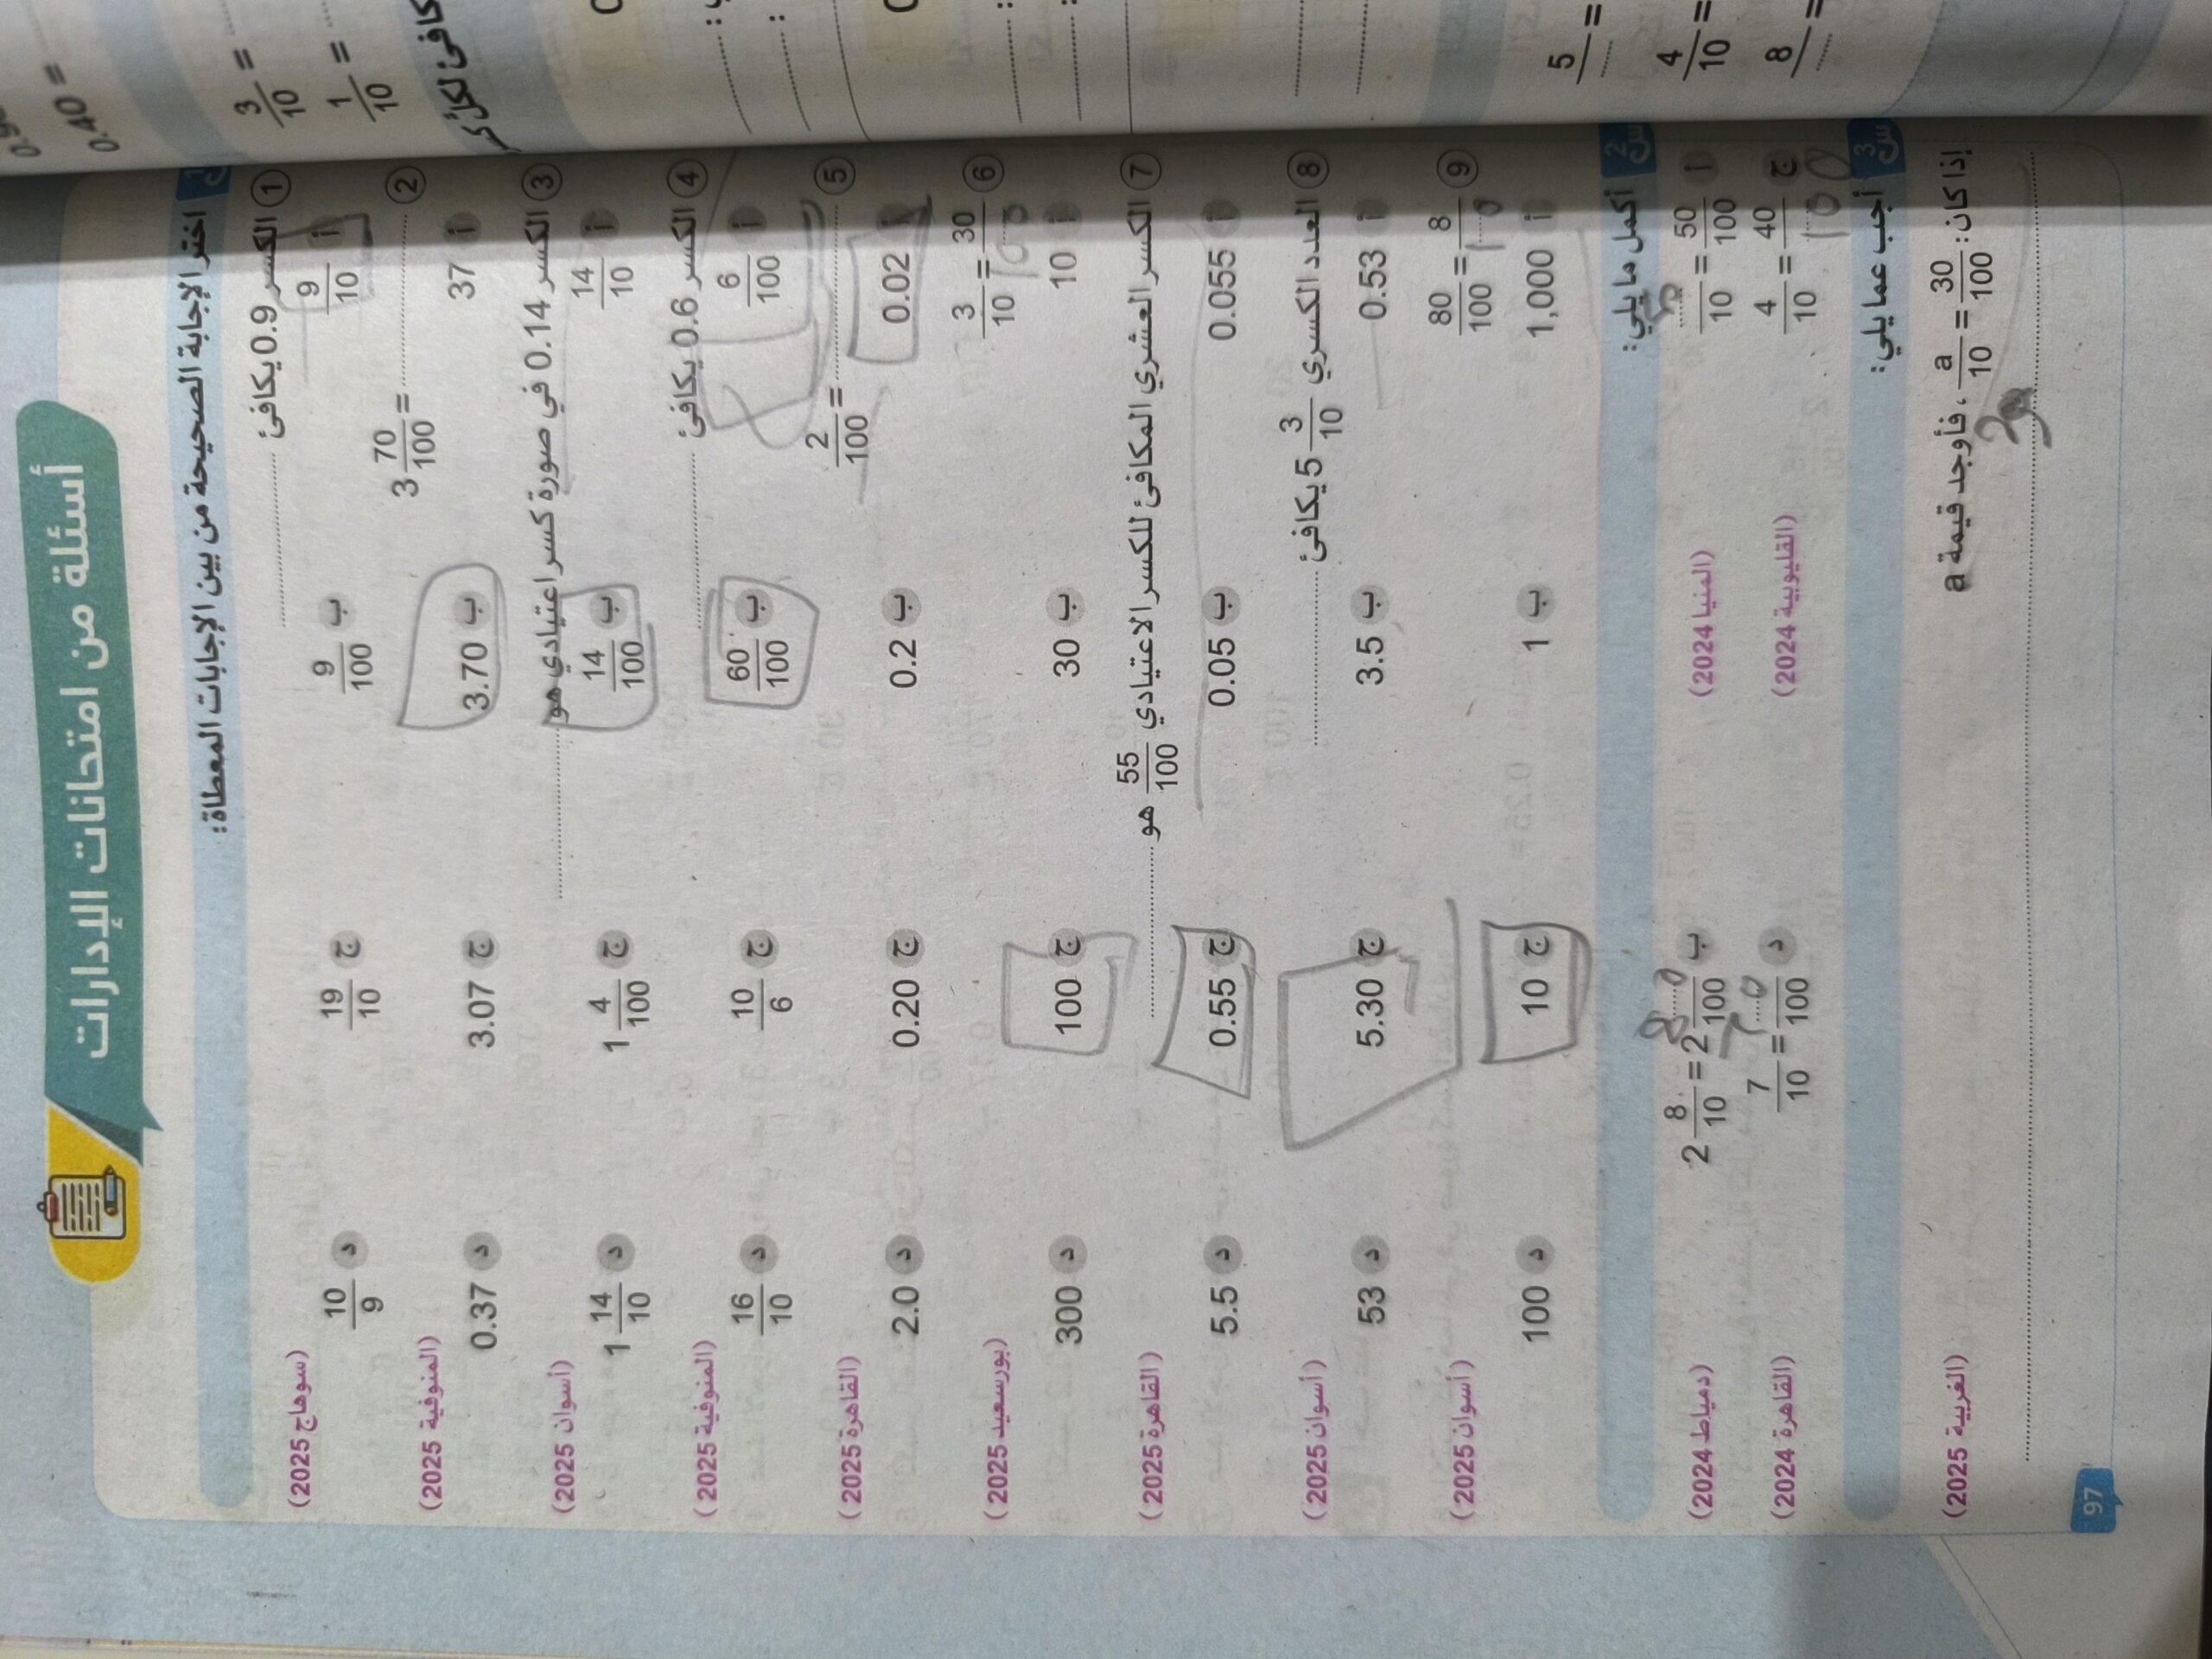 أسئلة من امتحانات الإدارات
اختر الإجابة الصحيحة من بين الإجابات المعطاة:
① الكسر 0.9 يكافئ ........ (سوهاج 2025)
أ 9/10 ب 9/100 ج 19/10 د 10/9
② ........ = 3 70/100 (المنوفية 2025)
أ 37 ب 3.70 ج 3.07 د 0.37
③ الكسر 0.14 في صورة كسر اعتيادي هو ........ (أسوان 2025)
أ 14/10 ب 14/100 ج 1 4/100 د 1 14/10
④ الكسر 0.6 يكافئ ........ (المنوفية 2025)
أ 6/100 ب 60/100 ج 10/6 د 16/10
⑤ ........ = 2/100 (القاهرة 2025)
أ 0.02 ب 0.2 ج 0.20 د 2.0
⑥ 3/10 = 30/100 (بورسعيد 2025)
أ 10 ب 30 ج 100 د 300
⑦ الكسر العشري المكافئ للكسر الاعتيادي 55/100 هو ........ (القاهرة 2025)
أ 0.055 ب 0.05 ج 0.55 د 5.5
⑧ العدد الكسري 5 3/10 يكافئ ........ (أسوان 2025)
أ 0.53 ب 3.5 ج 5.30 د 53
⑨ 80/100 = 8/10 (أسوان 2025)
أ 1,000 ب 1 ج 10 د 100
س 2 أكمل ما يلي:
أ 5/10 = 50/100 (المنيا 2024) ب 2 8/10 = 2 80/100 (دمياط 2024)
ج 4/10 = 40/100 (القليوبية 2024) د 7/10 = 70/100 (القاهرة 2024)
س 3 أجب عما يلي:
إذا كان: a/10 = 30/100 ، فأوجد قيمة a (الغربية 2025)
97
0.40 =
3/10 =
1/10 =
5/.... =
4/10 =
8/.... =